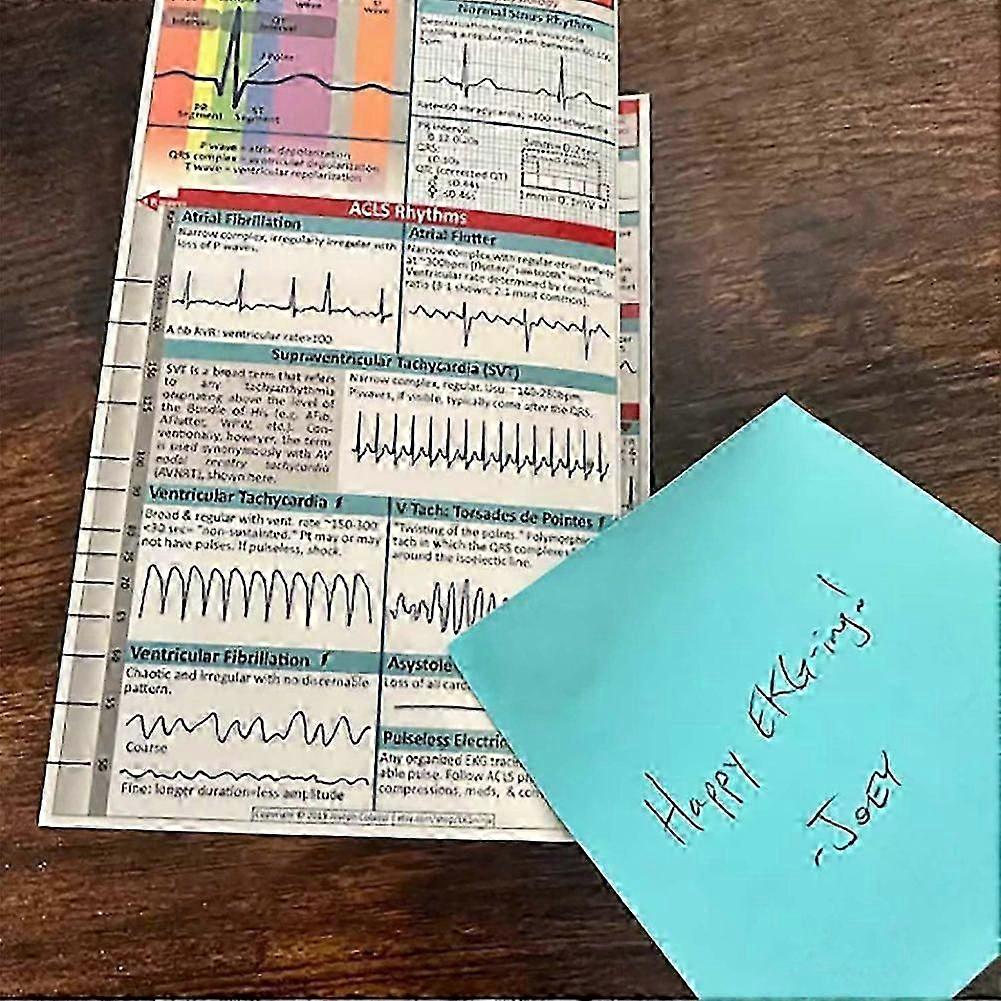 Interval
QT
Interval
wave
wave
J Point
PR
Segment
ST
Segment
P wave = atrial depolarization
QRS complex = ventricular depolarization
T wave = ventricular repolarization
Normal Sinus Rhythm
Rate<60 =bradycardia; >100 =tachycardia
PR Interval
0.12-0.20s
QRS:
≤0.10s
QT: (corrected QT)
1mm=0.1mV
ACLS Rhythms
Atrial Fibrillation
Narrow complex, irregularly irregular with
loss of P waves.
A fib RVR: ventricular rate>100
Atrial Flutter
Narrow complex with regular atrial activity
at ~300bpm (fluttery "sawtooth" waves).
Ventricular rate determined by conduction
ratio (3:1 shown; 2:1 most common).
Supraventricular Tachycardia (SVT)
SVT is a broad term that refers
to any tachyarrhythmia
originating above the level of
the Bundle of His (e.g. AFib,
AFlutter, WPW, etc.). Con-
ventionally, however, the term
is used synonymously with AV
nodal reentry tachycardia
(AVNRT), shown here.
Narrow complex, regular. Usu. ~140-280bpm.
P waves, if visible, typically come after the QRS.
Ventricular Tachycardia
Broad & regular with vent. rate ~150-300.
<30 sec= "non-sustained." Pt may or may
not have pulses. If pulseless, shock.
V Tach: Torsades de Pointes
"Twisting of the points." Polymorphic
tach in which the QRS complexes
around the isoelectic line.
Ventricular Fibrillation
Chaotic and irregular with no discernable
pattern.
Coarse
Fine: longer duration=less amplitude
Asystole
Loss of all card
Pulseless Electric
Any organized EKG trac
able pulse. Follow ACLS
compressions, meds, & con
Happy EKG-ing!
-JOEY